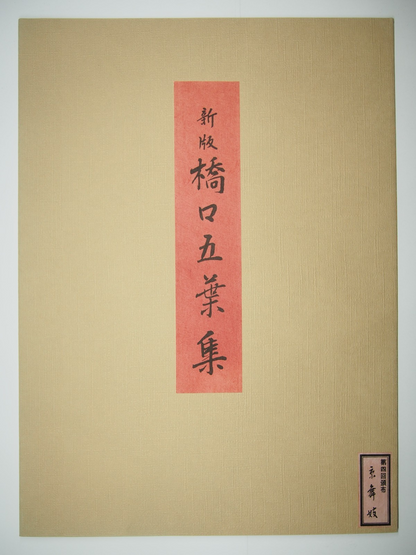 新版
橋口五葉集
第四回頒布
京舞妓